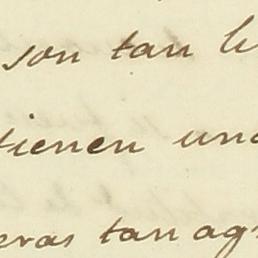 son tan li
tienen una
eras tan ag